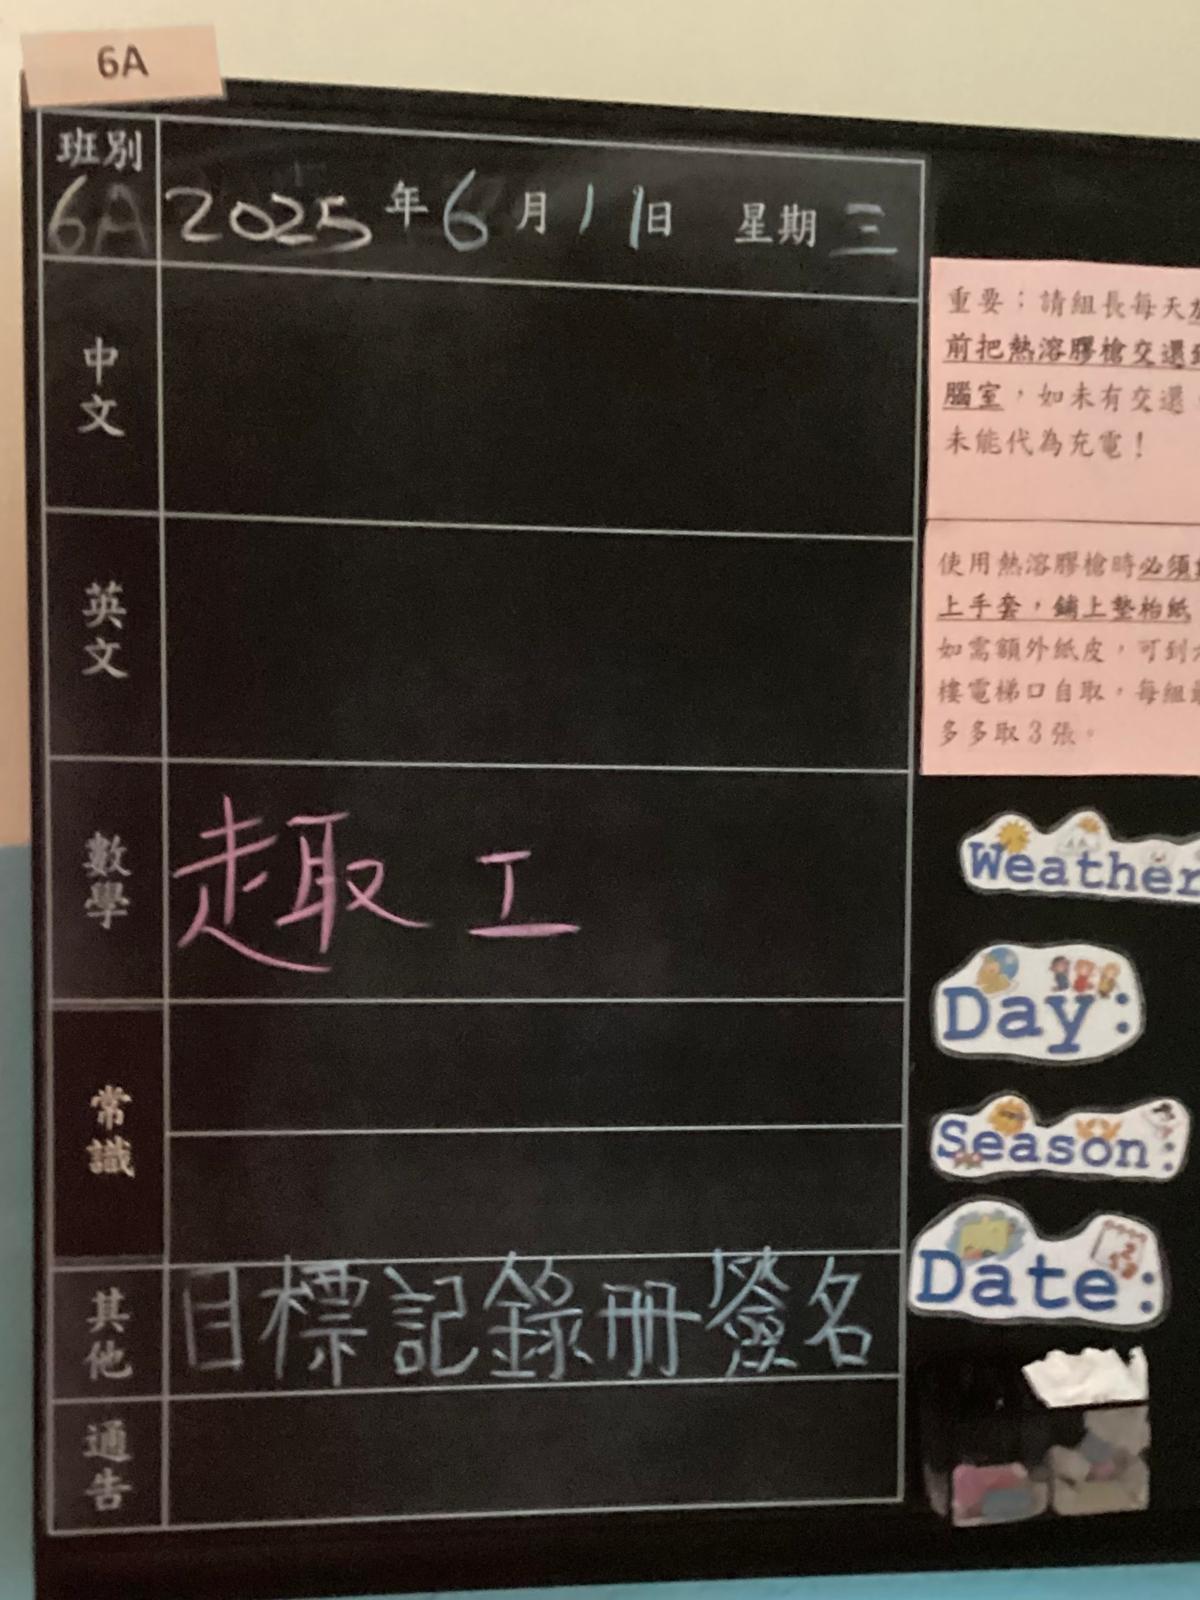 6A
班別
6A 2025年6月11日 星期三
中文
英文
數學
趣 工
常識
其他
目標記錄冊簽名
通告
重要：請組長每天
前把熱溶膠槍交還
腦室，如未有交還
未能代為充電！
使用熱溶膠槍時必須
上手套，鋪上墊枱紙
如需額外紙皮，可到
樓電梯口自取，每組
多多取3張。
Weather
Day:
Season:
Date: